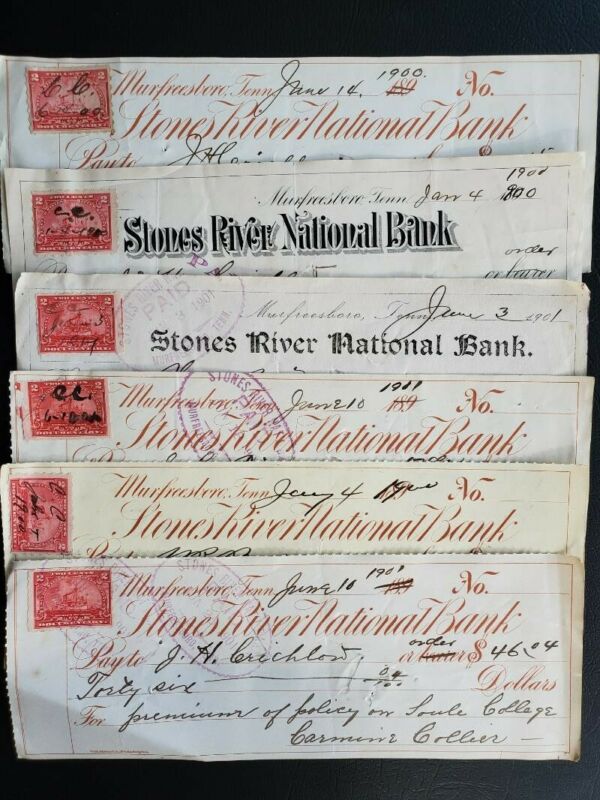 2 2
TWO CENTS
C.C.
DOCUMENTARY
Murfreesboro, Tenn. June 14 1900. 189 No.
Stones River National Bank
Pay to J H
1900
Murfreesboro, Tenn. Jan 4
Stones River National Bank
order
or bearer
C.C.
STONES RIVER
PAID
1901
TENN.
Murfreesboro, Tenn. June 3 1901
Stones River National Bank.
C.C.
Murfreesboro, Tenn. June 10 189 No.
Stones River National Bank
STONES RIVER
C C
1900
Murfreesboro, Tenn. Jany 4 No.
Stones River National Bank
STONES RIVER
2 TWO CENTS 2
DOCUMENTARY
Murfreesboro, Tenn. June 10 189 No.
Stones River National Bank
Pay to J. H. Crichlow order or bearer $ 46.04
Forty six 04/100 Dollars
For premium of policy on Soule College
Carmine Collier